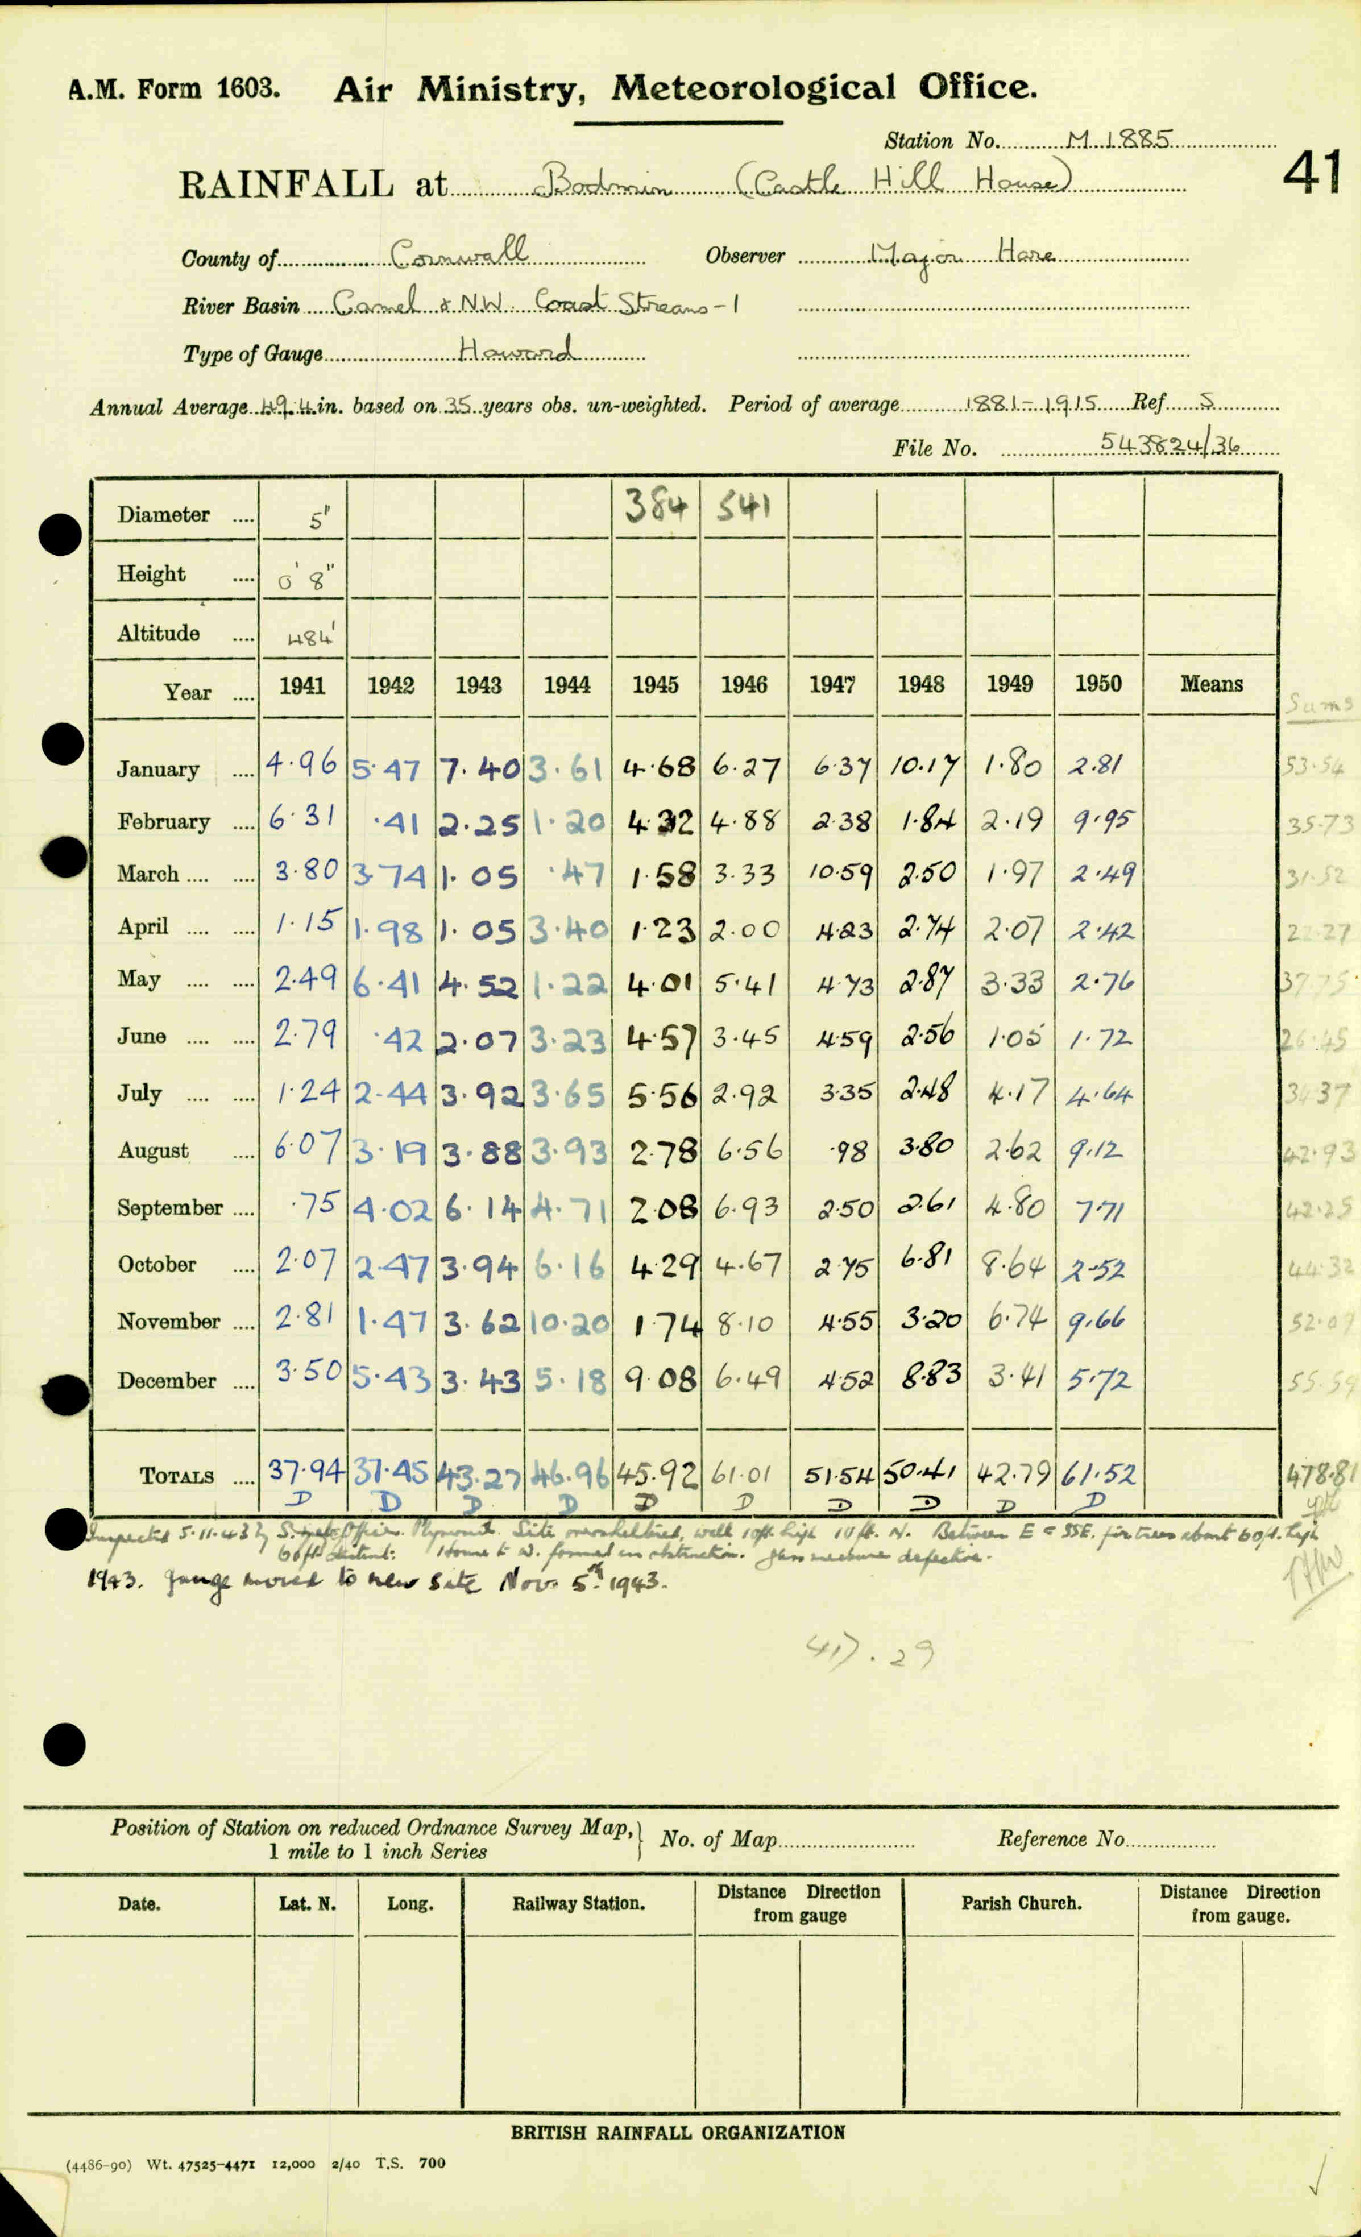 A.M. Form 1603. Air Ministry, Meteorological Office.
Station No. M 1885
41
RAINFALL at Bodmin (Castle Hill House)
County of Cornwall Observer Major Hare
River Basin Camel & NW. Coast Streams - 1
Type of Gauge Howard
Annual Average 49.4 in. based on 35 years obs. un-weighted. Period of average 1881-1915 Ref S
File No. 543824/36
Diameter .... 5" 384 541
Height .... 0' 8"
Altitude .... 484'
Year .... 1941 1942 1943 1944 1945 1946 1947 1948 1949 1950 Means Sums
January .... 4.96 5.47 7.40 3.61 4.68 6.27 6.37 10.17 1.80 2.81 53.54
February .... 6.31 .41 2.25 1.20 4.32 4.88 2.38 1.84 2.19 9.95 35.73
March .... .... 3.80 3.74 1.05 .47 1.58 3.33 10.59 2.50 1.97 2.49 31.52
April .... .... 1.15 1.98 1.05 3.40 1.23 2.00 4.23 2.74 2.07 2.42 22.27
May .... .... 2.49 6.41 4.52 1.22 4.01 5.41 4.73 2.87 3.33 2.76 37.75
June .... .... 2.79 .42 2.07 3.23 4.57 3.45 4.59 2.56 1.05 1.72 26.45
July .... .... 1.24 2.44 3.92 3.65 5.56 2.92 3.35 2.48 4.17 4.64 34.37
August .... 6.07 3.19 3.88 3.93 2.78 6.56 .98 3.80 2.62 9.12 42.93
September .... .75 4.02 6.14 4.71 2.08 6.93 2.50 2.61 4.80 7.71 42.25
October .... 2.07 2.47 3.94 6.16 4.29 4.67 2.75 6.81 8.64 2.52 44.32
November .... 2.81 1.47 3.62 10.20 1.74 8.10 4.55 3.20 6.74 9.66 52.09
December .... 3.50 5.43 3.43 5.18 9.08 6.49 4.52 8.83 3.41 5.72 55.59
TOTALS .... 37.94 37.45 43.27 46.96 45.92 61.01 51.54 50.41 42.79 61.52 478.81
D D D D D D D D D D
Inspected 5.11.43 by Office Plymouth. Site oversheltered, wall 10ft. high 10ft. N. Between E & SSE. fir trees about 60ft. high
60ft distant. House to W. formed an obstruction. Glass measure defective.
1943. Gauge moved to new site Nov. 5th 1943.
417.29
Position of Station on reduced Ordnance Survey Map, } No. of Map Reference No
1 mile to 1 inch Series
Date. Lat. N. Long. Railway Station. Distance Direction from gauge Parish Church. Distance Direction from gauge.
BRITISH RAINFALL ORGANIZATION
(4486-90) Wt. 47525-4471 12,000 2/40 T.S. 700